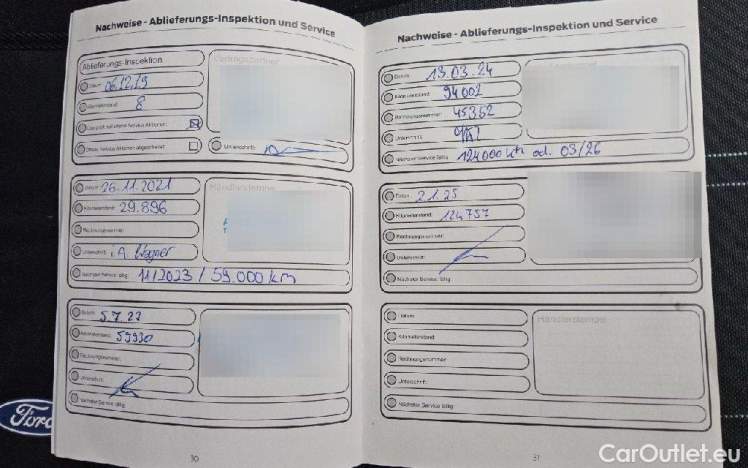 Nachweise - Ablieferungs-Inspektion und Service
Ablieferungs-Inspektion
Datum: 06.12.19
Kilometerstand: 8
Unterschrift:
Datum: 26.11.2021
Kilometerstand: 29.896
Rechnungsnummer:
Unterschrift: i.A. Wagner
Nächster Service fällig: 11/2023 / 59.000 km
Händlerstempel
Datum: 5.7.22
Kilometerstand: 59930
Rechnungsnummer:
Unterschrift:
Nächster Service fällig:
30
Nachweise - Ablieferungs-Inspektion und Service
Datum: 13.03.24
Kilometerstand: 94002
Rechnungsnummer: 45352
Unterschrift:
Nächster Service fällig: 124000 km od. 03/26
Datum: 2.1.25
Kilometerstand: 124757
Rechnungsnummer:
Unterschrift:
Nächster Service fällig:
Datum:
Kilometerstand:
Rechnungsnummer:
Unterschrift:
Nächster Service fällig:
Händlerstempel
31
Ford
CarOutlet.eu